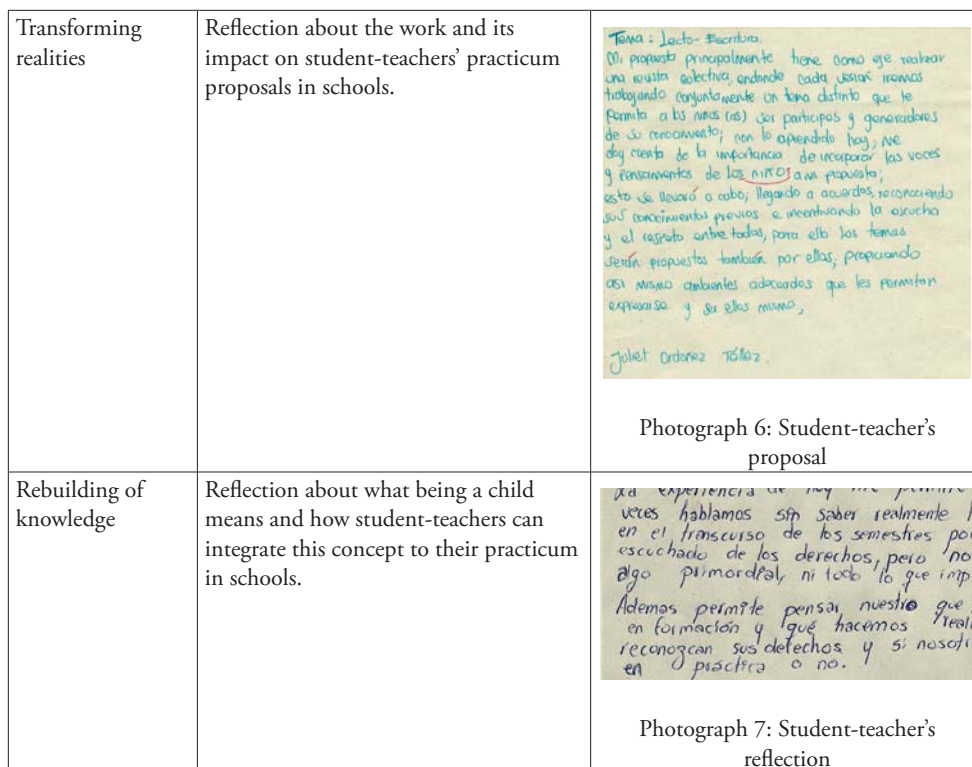 Transforming
realities
Reflection about the work and its
impact on student-teachers' practicum
proposals in schools.
Tema: Lecto-Escritura.
Mi propuesta principalmente tiene como eje realizar
una revista colectiva, endonde cada sesión iremos
trabajando conjuntamente un tema distinto que le
permita a los niños (as) ser participes y generadores
de su conocimiento; con lo aprendido hoy, me
doy cuenta de la importancia de incorporar las voces
y pensamientos de los niños a mi propuesta;
esto se llevará a cabo, llegando a acuerdos, reconociendo
sus conocimientos previos e incentivando la escucha
y el respeto entre todos, para ello los temas
serán propuestos también por ellos, propiciando
asi mismo ambientes adecuados que les permitan
expresarse y ser ellos mismo,
Ordoñez
Photograph 6: Student-teacher's
proposal
Rebuilding of
knowledge
Reflection about what being a child
means and how student-teachers can
integrate this concept to their practicum
in schools.
experiencia de hoy me
veces hablamos sin saber realmente
en el transcurso de los semestres
escuchado de los derechos, pero no
algo primordial, ni todo lo que
Ademas permite pensar nuestro que
en formación y qué hacemos
reconozcan sus derechos y si
en práctica o no.
Photograph 7: Student-teacher's
reflection